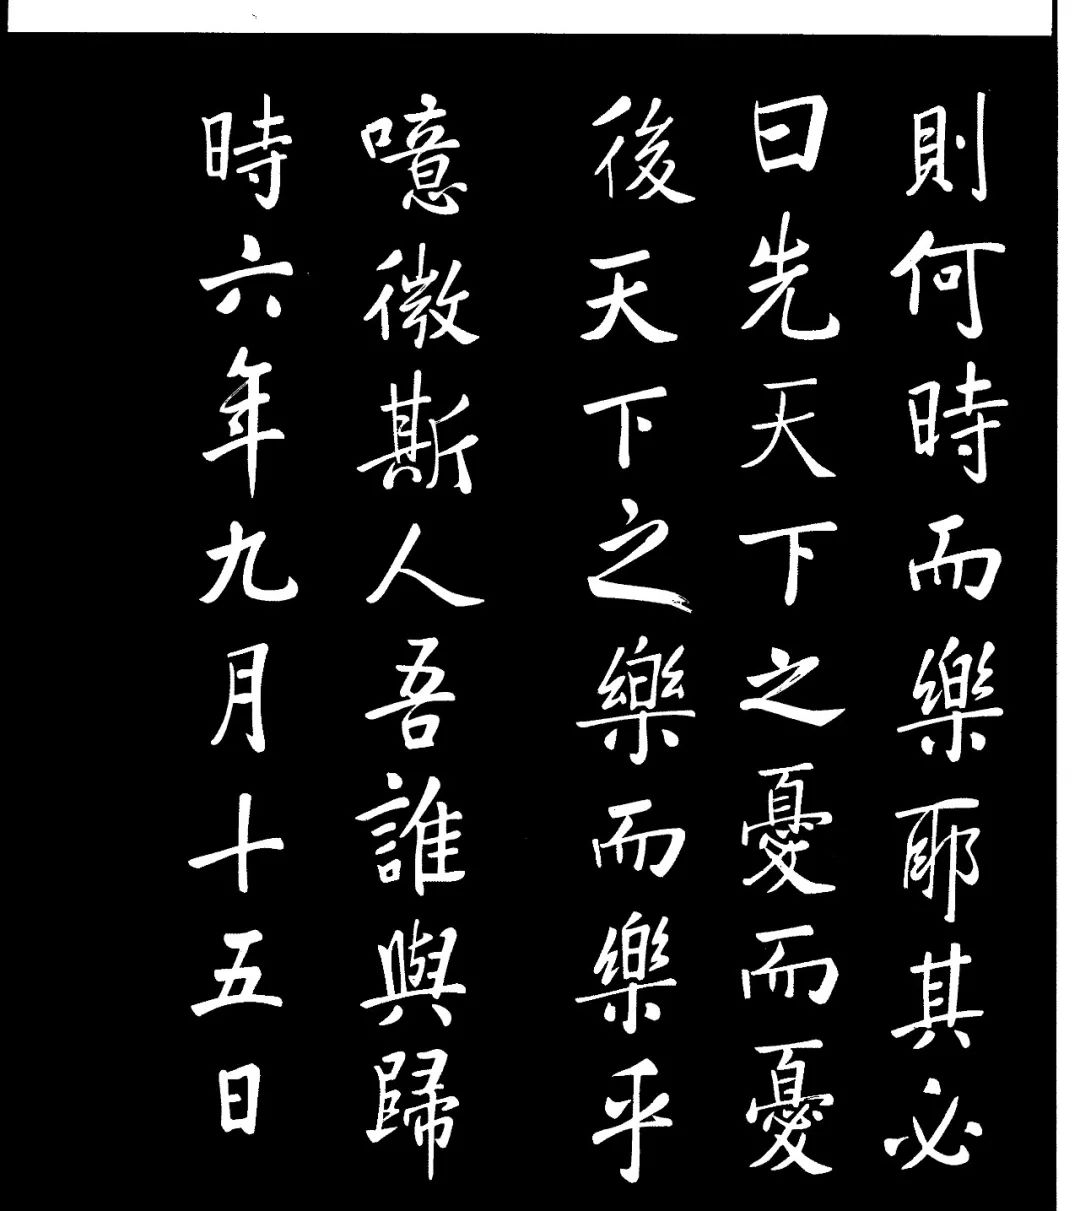 則何時而樂耶其必
曰先天下之憂而憂
後天下之樂而樂乎
噫微斯人吾誰與歸
時六年九月十五日